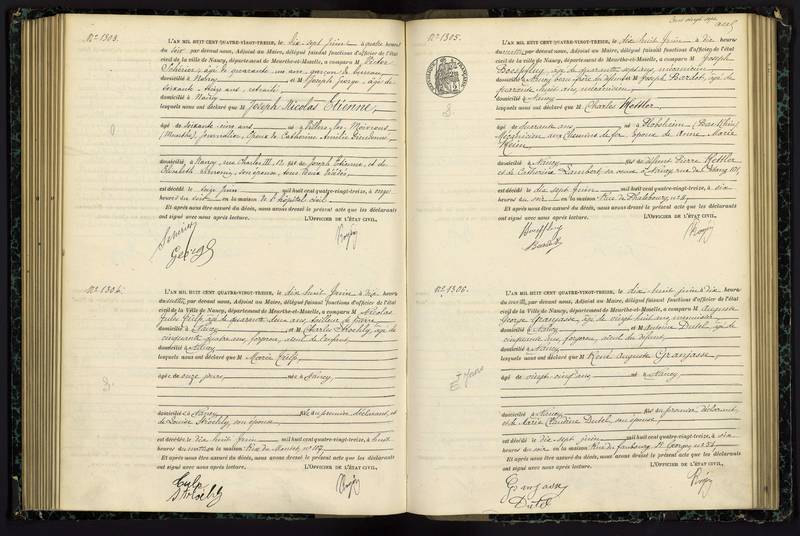 N° 1303.
L'AN MIL HUIT CENT QUATRE-VINGT-TREIZE, le dix-sept juin à quatre heures
du soir par devant nous, Adjoint au Maire, délégué faisant fonctions d'officier de l'état
civil de la ville de Nancy, département de Meurthe-et-Moselle, a comparu M Victor
âgé de quarante un ans, garçon de bureau,
domicilié à Nancy et M Joseph George âgé de
soixante ans, retraité,
domicilié à Nancy
lesquels nous ont déclaré que M Joseph Nicolas Etienne,
âgé de soixante cinq ans né à Villers les Moivrons
(Meurthe), journalier, époux de Catherine Amélie
domicilié à Nancy, rue Charles III, fils de Joseph Etienne, et de
Elisabeth son épouse, tous deux décédés,
est décédé le seize juin mil huit cent quatre-vingt-treize, à onze
heures du soir en la maison de l'hôpital civil.
Et après nous être assuré du décès, nous avons dressé le présent acte que les déclarants
ont signé avec nous après lecture. L'OFFICIER DE L'ÉTAT CIVIL,
George
N° 1304.
L'AN MIL HUIT CENT QUATRE-VINGT-TREIZE, le dix huit juin à dix heures
du matin, par devant nous, Adjoint au Maire, délégué faisant fonctions d'officier de l'état
civil de la Ville de Nancy, département de Meurthe-et-Moselle, a comparu M Nicolas
Jules Culp, âgé de quarante deux ans, tailleur de pierre
domicilié à Nancy et M Charles Strochly, âgé de
cinquante quatre ans, forgeron, aïeul de l'enfant
domicilié à Nancy
lesquels nous ont déclaré que M Marie Culp,
âgée de onze jours, née à Nancy,
domiciliée à Nancy fille du premier déclarant, et
de Louise Strochly, son épouse
est décédée le dix huit juin mil huit cent quatre-vingt-treize, à huit
heures du matin en la maison Rue du Montet n° 117.
Et après nous être assuré du décès, nous avons dressé le présent acte que les déclarants
ont signé avec nous après lecture. L'OFFICIER DE L'ÉTAT CIVIL,
Culp
Strochly
N° 1305.
L'AN MIL HUIT CENT QUATRE-VINGT-TREIZE, le dix huit juin à dix heures
du matin, par devant nous, Adjoint au Maire, délégué faisant fonctions d'officier de l'état
civil de la ville de Nancy, département de Meurthe-et-Moselle, a comparu M Joseph
âgé de quarante ans, mécanicien
domicilié à Nancy, beau frère du défunt et M Joseph âgé de
quarante huit ans, mécanicien
domicilié à Nancy
lesquels nous ont déclaré que M Charles Kettler,
âgé de quarante ans, né à Plobsheim (Bas-Rhin)
Mécanicien aux Chemins de fer, époux de Anne Marie
domicilié à Nancy fils de défunt Pierre Kettler
et de Catherine Lambert sa veuve, à Nancy rue de l'Etang
est décédé le dix sept juin mil huit cent quatre-vingt-treize, à dix
heures du soir en la maison Rue de Phalsbourg
Et après nous être assuré du décès, nous avons dressé le présent acte que les déclarants
ont signé avec nous après lecture. L'OFFICIER DE L'ÉTAT CIVIL,
N° 1306.
L'AN MIL HUIT CENT QUATRE-VINGT-TREIZE, le dix huit juin à dix heures
du matin, par devant nous, Adjoint au Maire, délégué faisant fonctions d'officier de l'état
civil de la Ville de Nancy, département de Meurthe-et-Moselle, a comparu M Auguste
George Granjasse, âgé de vingt huit ans, menuisier
domicilié à Nancy et M Antoine Dutel, âgé de
cinquante six ans, forgeron, aïeul du défunt,
domicilié à Nancy
lesquels nous ont déclaré que M René Auguste Granjasse,
âgé de vingt cinq jours né à Nancy
domicilié à Nancy fils du premier déclarant
et de Marie Dutel, son épouse,
est décédé le dix sept juin mil huit cent quatre-vingt-treize, à six
heures du soir en la maison Rue du faubourg St Georges n° 54
Et après nous être assuré du décès, nous avons dressé le présent acte que les déclarants
ont signé avec nous après lecture. L'OFFICIER DE L'ÉTAT CIVIL,
Granjasse
Dutel